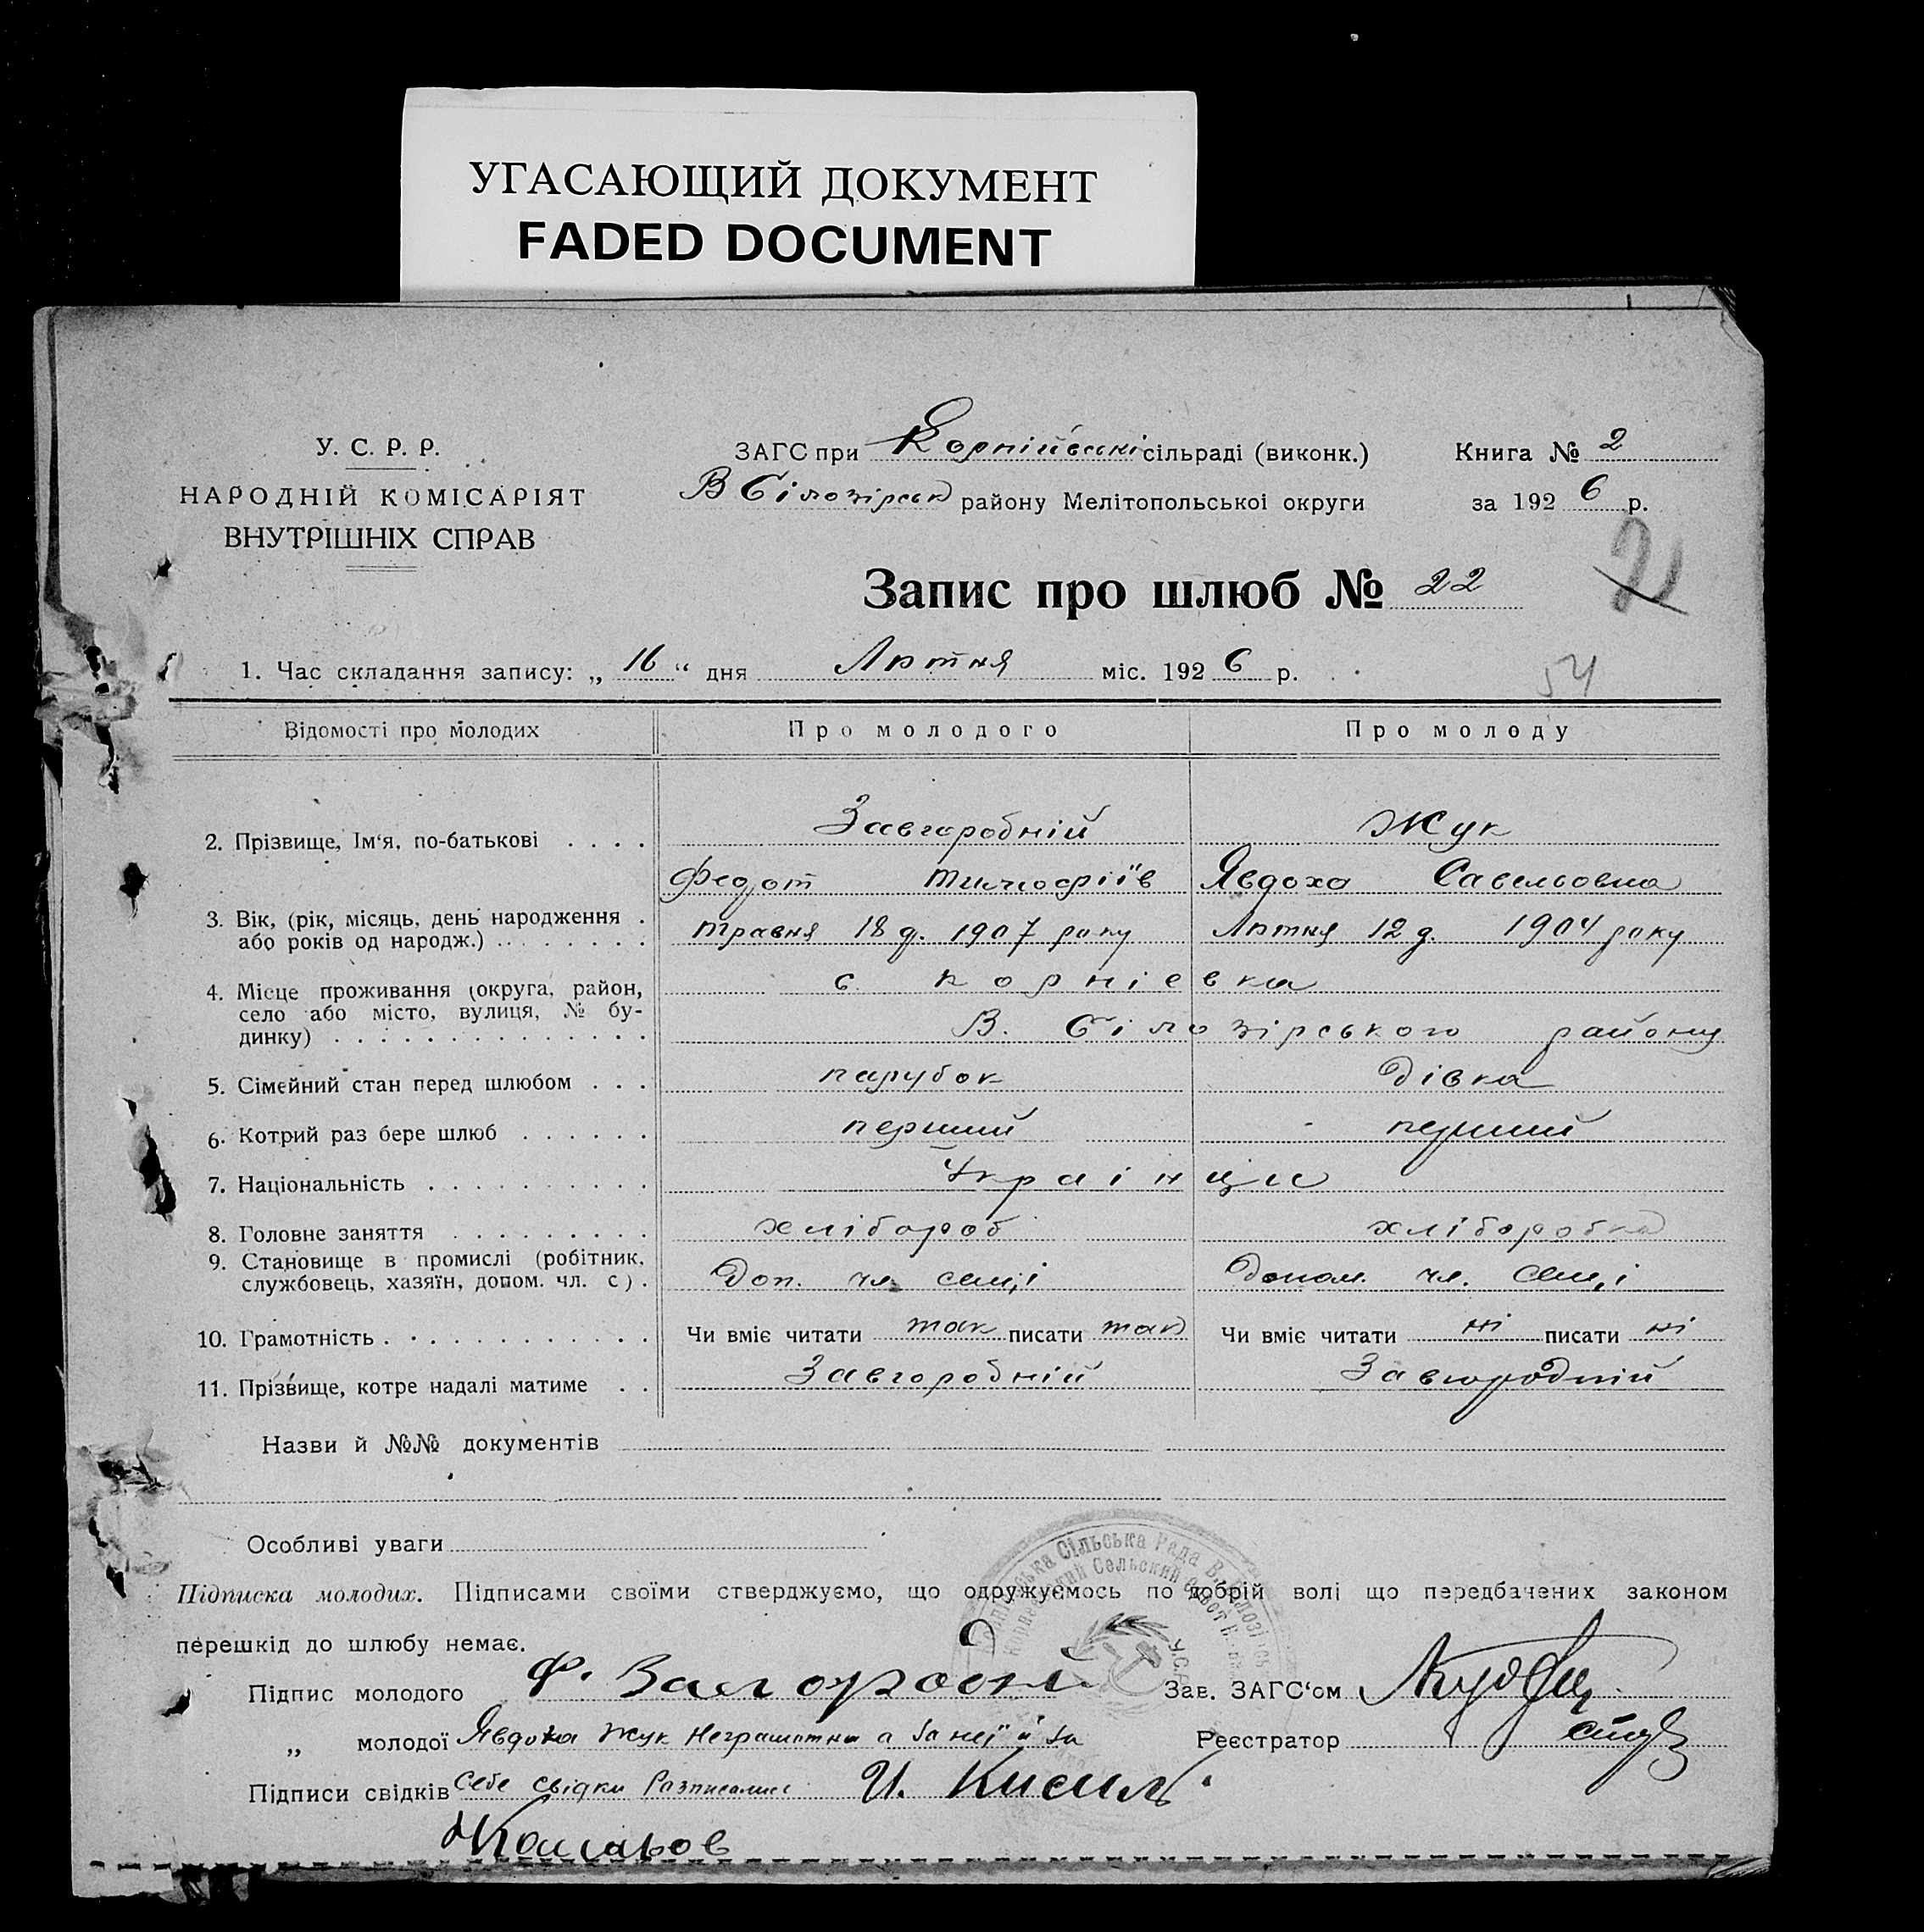 УГАСАЮЩИЙ ДОКУМЕНТ
FADED DOCUMENT
У. С. Р. Р.
НАРОДНІЙ КОМІСАРІЯТ
ВНУТРІШНІХ СПРАВ
ЗАГС при Корніївські сільраді (виконк.)
В Білозірськ району Мелітопольської округи
Книга № 2
за 1926 р.
Запис про шлюб № 22
21
1. Час складання запису: „16“ дня Лютня міс. 1926 р.
54
Відомості про молодих Про молодого Про молоду
2. Прізвище, Ім‘я, по-батькові . . . . Завгородній Жук
Федот Тимофіїв Явдоха Савельовна
3. Вік, (рік, місяць, день народження . травня 18 д. 1907 року Лютня 12 д. 1904 року
або років од народж.) . . . . . . . .
4. Місце проживання (округа, район, с. Корнієвка
село або місто, вулиця, № бу-
динку) . . . . . . . . . . . . . . В. Білозірського району
5. Сімейний стан перед шлюбом . . . парубок дівка
6. Котрий раз бере шлюб . . . . . . перший перший
7. Національність . . . . . . . . . . Українци
8. Головне заняття . . . . . . . . . хлібороб хліборобка
9. Становище в промислі (робітник,
службовець, хазяїн, допом. чл. с) . Доп. чл. семʼі Допом. чл. семʼі
10. Грамотність . . . . . . . . . . . . Чи вміє читати так писати так Чи вміє читати ні писати ні
11. Прізвище, котре надалі матиме . . Завгородній Завгородній
Назви й №№ документів
Особливі уваги
Підписка молодих. Підписами своїми стверджуємо, що одружуємось по добрій волі що передбачених законом
перешкід до шлюбу немає.
Підпис молодого Ф. Зав. ЗАГС‘ом
„ молодої Явдоха Жук Неграмотна а за неї й за Реєстратор
Підписи свідків себе свідки Разписались И. Кисиль
Сільська Рада
Сельский